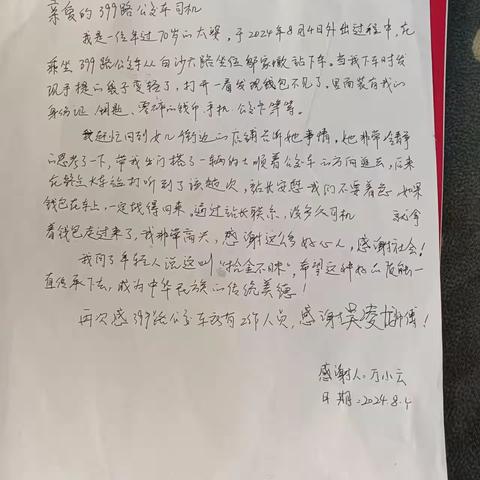 亲爱的399路公交车司机
我是一位年过70岁的大婆，于2024年8月4日外出过程中，在
乘坐399路公交车从白沙大路坐位邹家墩站下车。当我下车时发
现手提的袋子变轻了，打开一看发现钱包不见了，里面装有我的
身份证、钥匙、零碎的钱币、手机、公交卡等等。
我赶忙回到女儿街边的店铺告诉她事情，她非常冷静
的思考了一下，带我出门搭了一辆的士顺着公交车的方向追去，后来
在轻工大车站打听到了该趟次，站长安慰我们不要着急，如果
钱包在车上，一定找得回来。通过站长联系，没多久司机 就拿
着钱包走过来了，我非常高兴，感谢这么多好心人，感谢社会！
我问了年轻人说这叫“拾金不昧”，希望这种好品质能一
直传承下去，成为中华民族的传统美德！
再次感399路公交车所有工作人员，感谢吴凌师傅！
感谢人：万小云
日期：2024.8.4